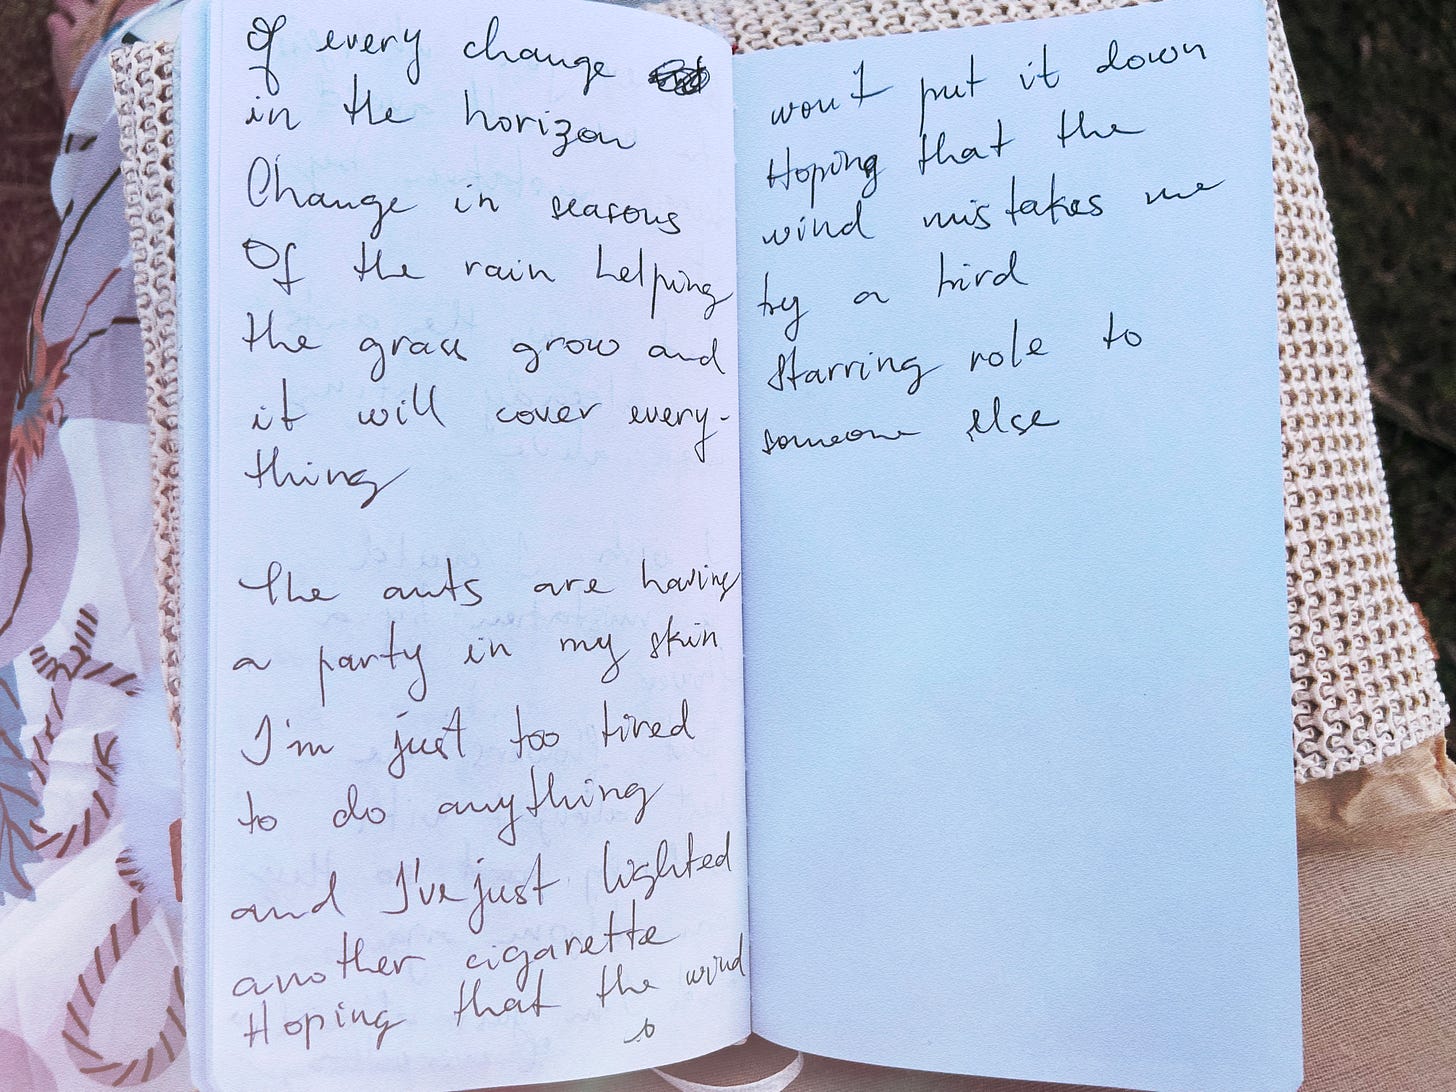 Of every change
in the horizon
Change in seasons
Of the rain helping
the grass grow and
it will cover every-
thing
The ants are having
a party in my skin
I'm just too tired
to do anything
and I've just lighted
another cigarette
Hoping that the wind
won't put it down
Hoping that the
wind mistakes me
by a bird
Starring role to
someone else